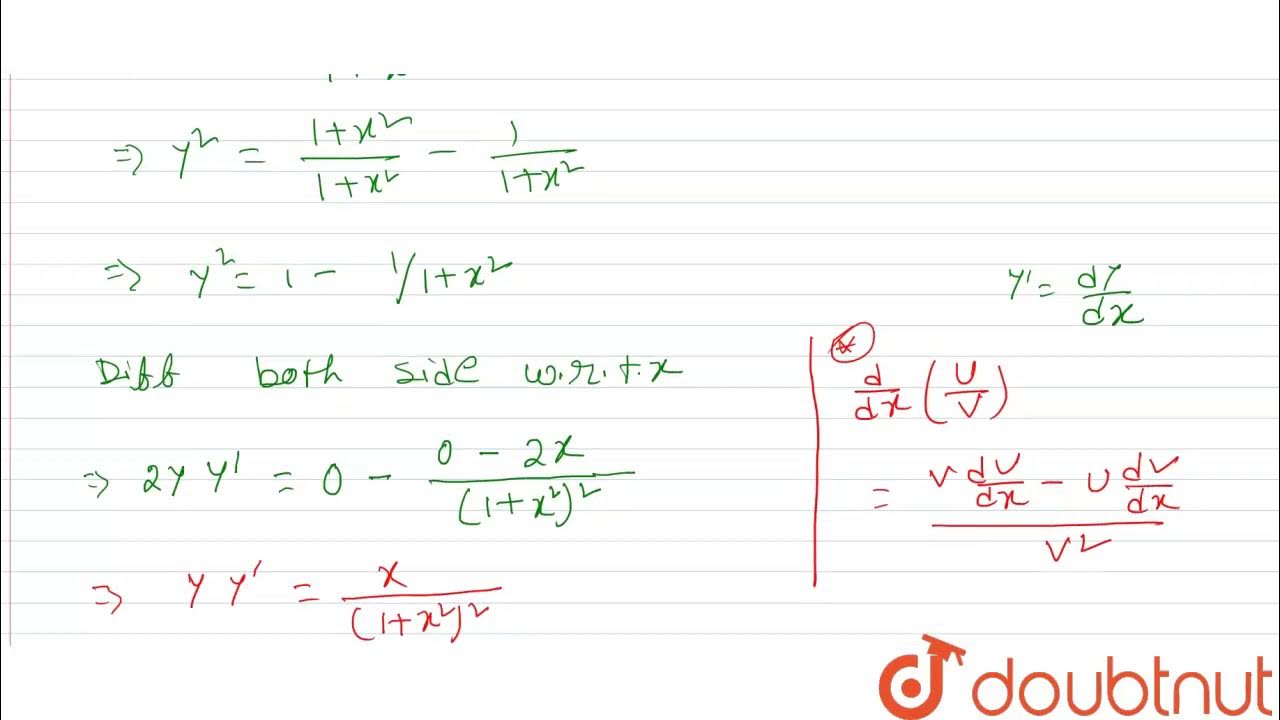 ⇒ y² = (1+x²)/(1+x²) - 1/(1+x²)
⇒ y² = 1 - 1/1+x²
Diff both side w.r.t.x
⇒ 2y y' = 0 - (0 - 2x)/(1+x²)²
⇒ y y' = x/(1+x²)²
y' = dy/dx
* d/dx (U/V)
= (V dU/dx - U dV/dx)/V²
doubtnut